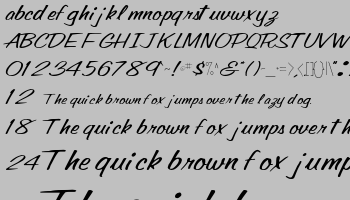 abcdefghijklmnopqrstuvwxyz
ABCDEFGHIJKLMNOPQRSTUVW
0123456789
12 The quick brown fox jumps over the lazy dog.
18 The quick brown fox jumps over th
24 The quick brown fox jump